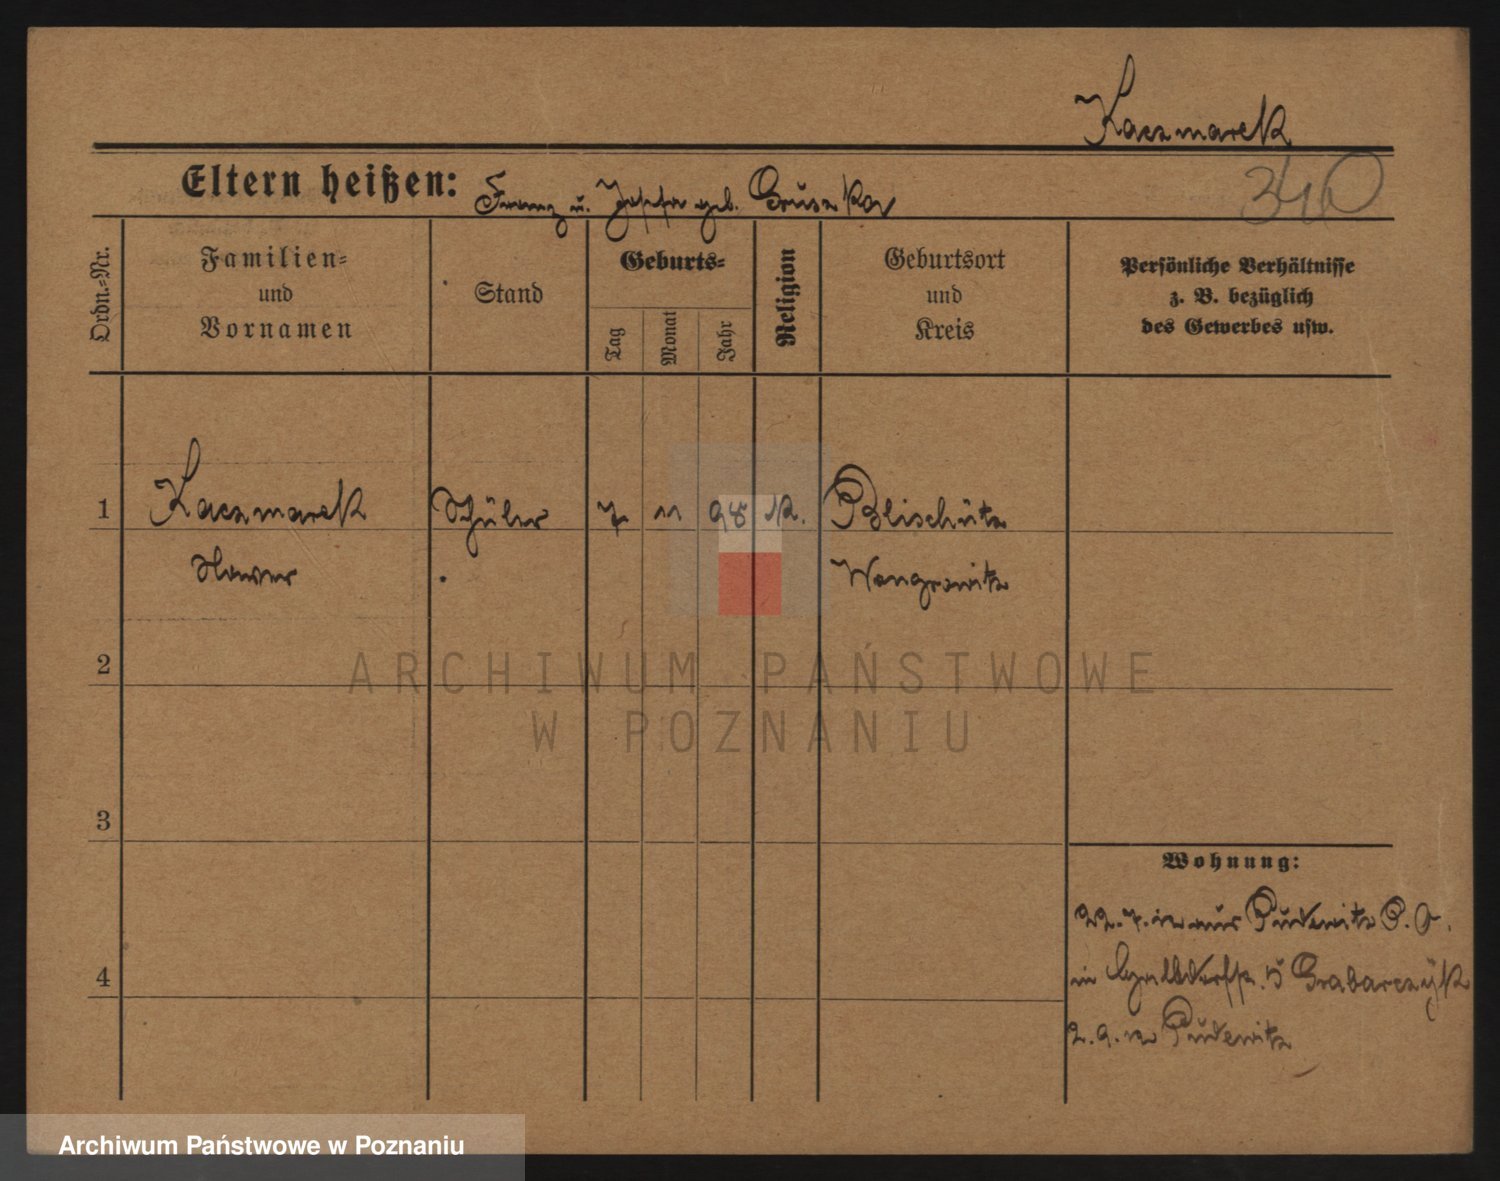 Kaczmarek
Eltern heißen: Franz u. Josefa geb.
340
Ordn.-Nr.
Familien-
und
Vornamen
Stand
Geburts-
Tag
Monat
Jahr
Religion
Geburtsort
und
Kreis
Persönliche Verhältnisse
z. B. bezüglich
des Gewerbes usw.
1 Kaczmarek Schüler 7 11 98 K. Blischütz
Wongrowitz
2
3
4
Wohnung:
22. 7. 12 aus Pudewitz P. O.
in 5 Grabarczyk
2. 9. n Pudewitz
ARCHIWUM PAŃSTWOWE
W POZNANIU
Archiwum Państwowe w Poznaniu